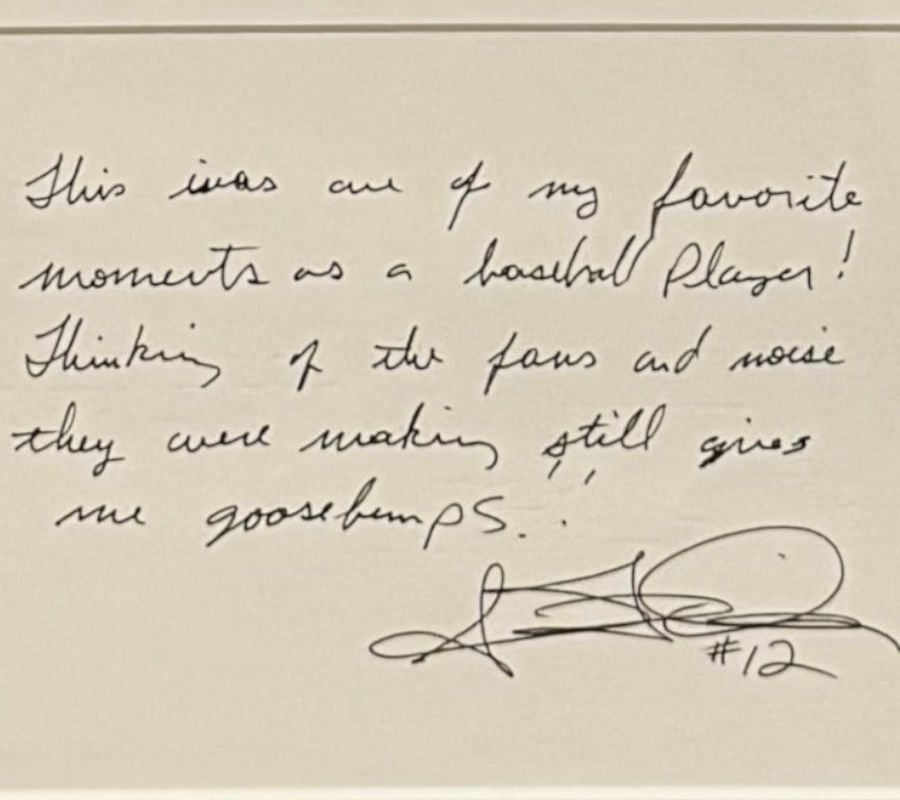 This was one of my favorite
moments as a baseball Player!
Thinking of the fans and noise
they were making still gives
me goosebumps!!
#12